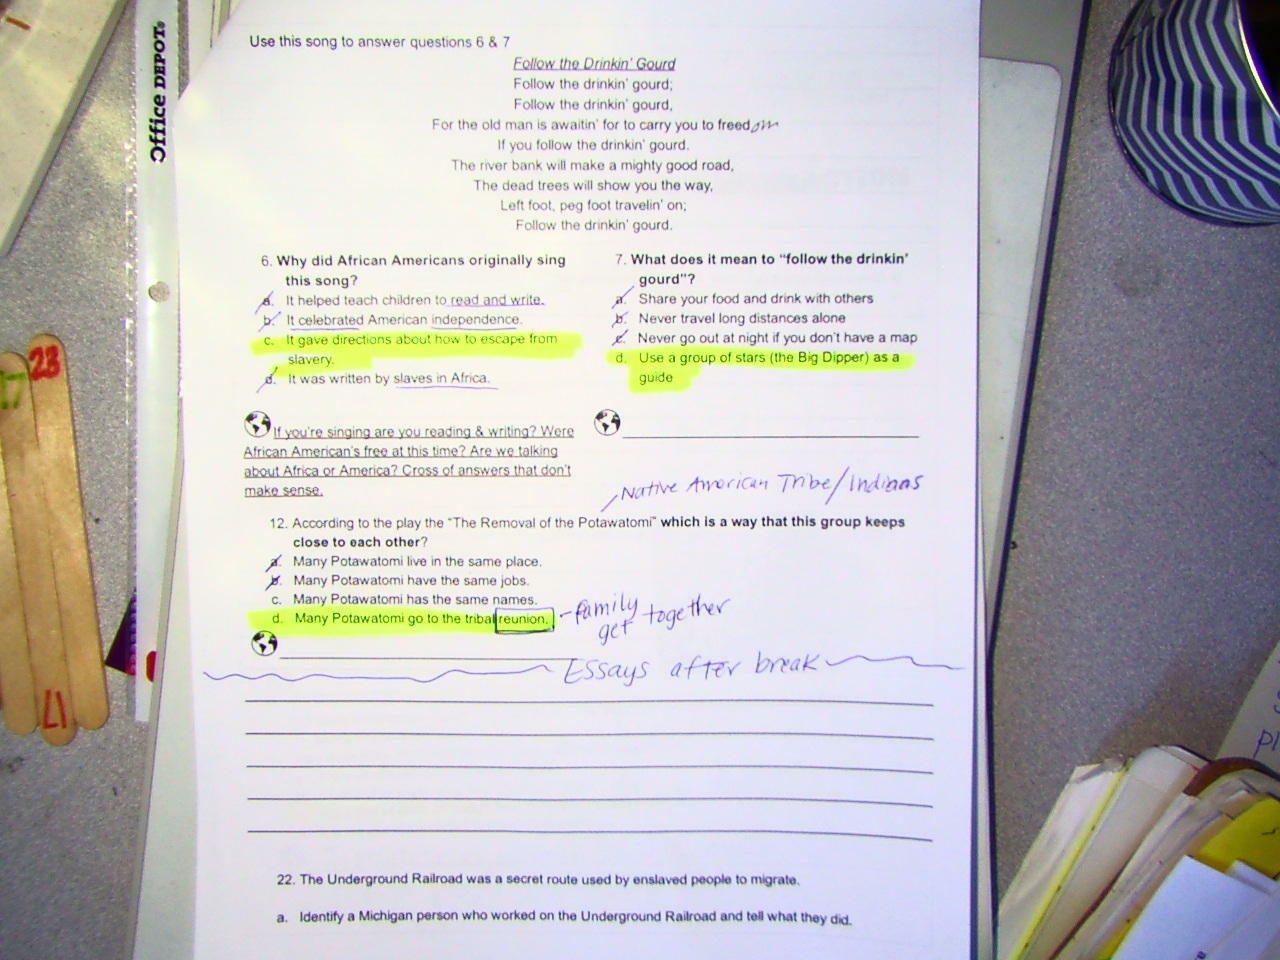 Office DEPOT
Use this song to answer questions 6 & 7
Follow the Drinkin' Gourd
Follow the drinkin' gourd;
Follow the drinkin' gourd,
For the old man is awaitin' for to carry you to freedom
If you follow the drinkin' gourd.
The river bank will make a mighty good road,
The dead trees will show you the way,
Left foot, peg foot travelin' on;
Follow the drinkin' gourd.
6. Why did African Americans originally sing
this song?
a. It helped teach children to read and write.
b. It celebrated American independence.
c. It gave directions about how to escape from
slavery.
d. It was written by slaves in Africa.
If you're singing are you reading & writing? Were
African American's free at this time? Are we talking
about Africa or America? Cross of answers that don't
make sense.
7. What does it mean to "follow the drinkin'
gourd"?
a. Share your food and drink with others
b. Never travel long distances alone
c. Never go out at night if you don't have a map
d. Use a group of stars (the Big Dipper) as a
guide
Native American Tribe/Indians
12. According to the play the "The Removal of the Potawatomi" which is a way that this group keeps
close to each other?
a. Many Potawatomi live in the same place.
b. Many Potawatomi have the same jobs.
c. Many Potawatomi has the same names.
d. Many Potawatomi go to the tribal reunion. - family
get together
Essays after break
22. The Underground Railroad was a secret route used by enslaved people to migrate.
a. Identify a Michigan person who worked on the Underground Railroad and tell what they did.
23
17
17